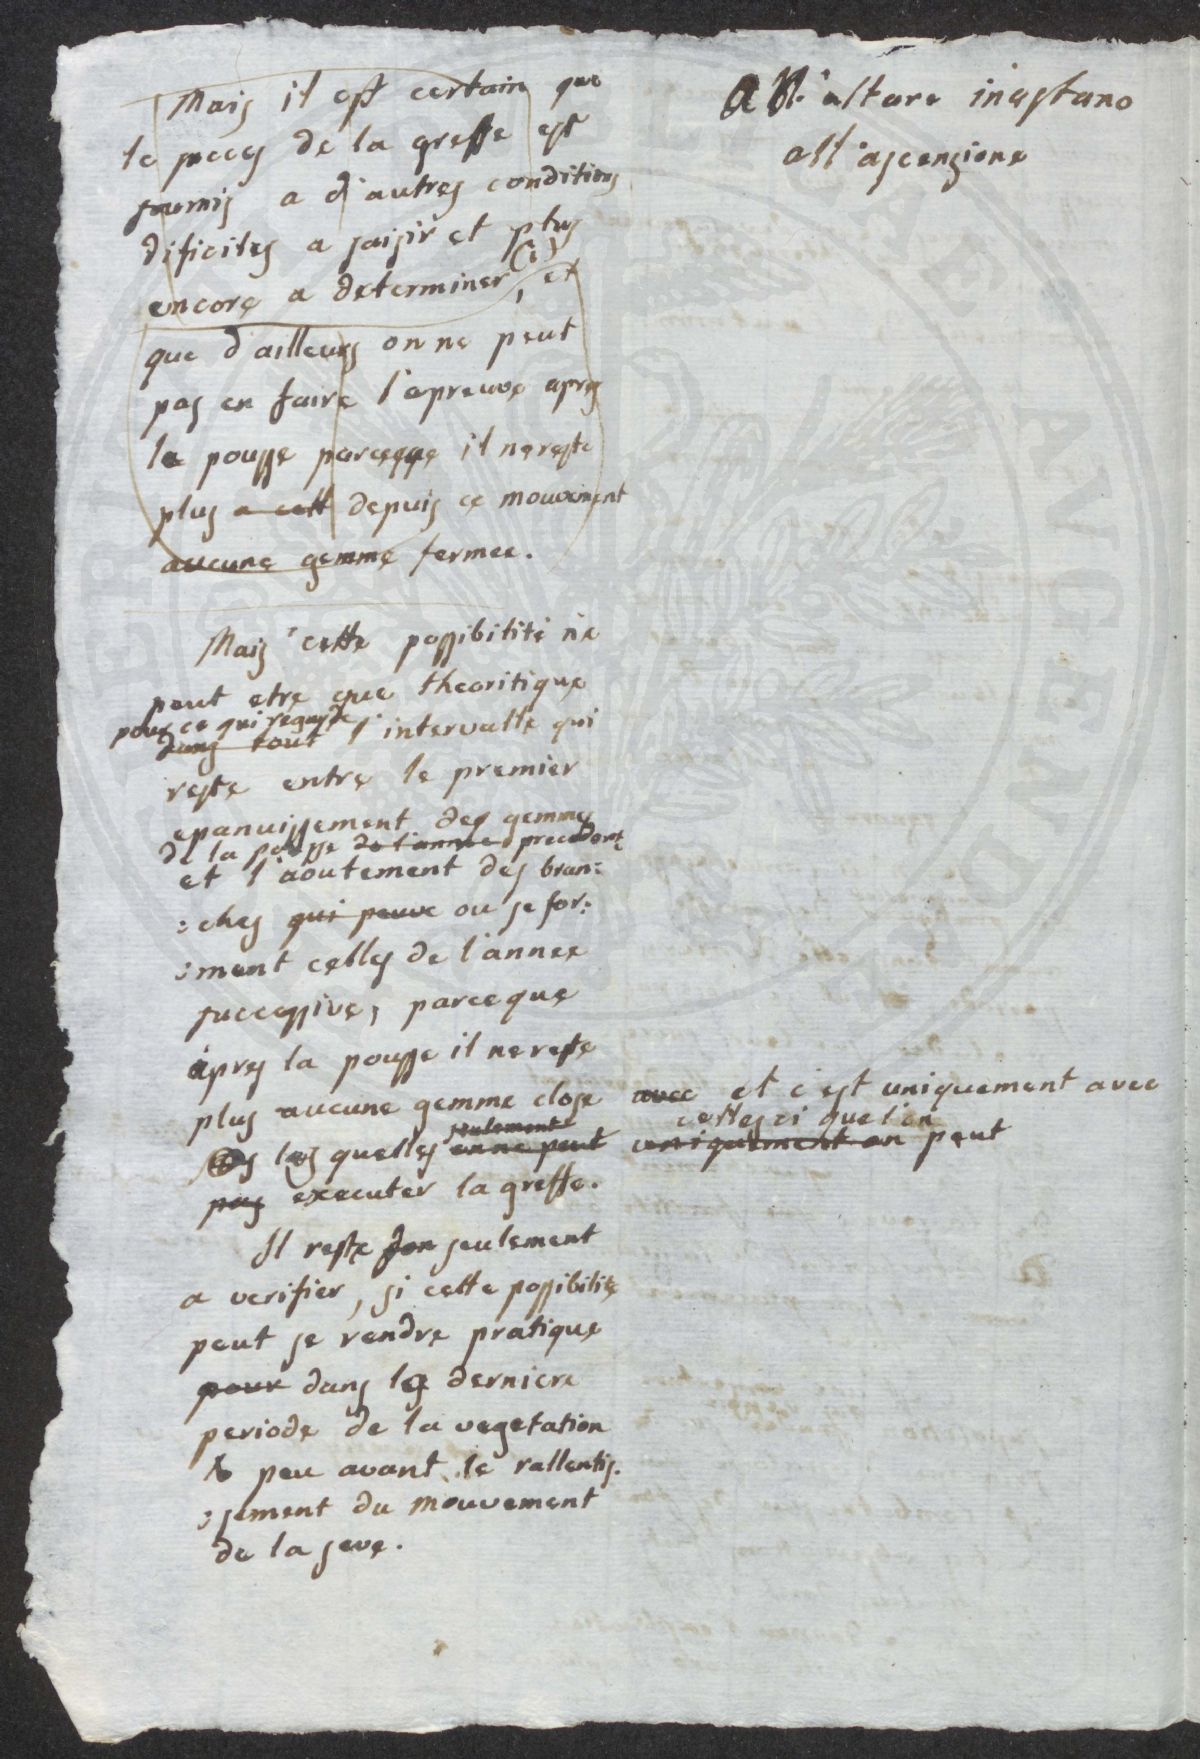 Mais il est certain que
le succes de la greffe est
soumis a d'autres conditions
dificiles a saisir et plus
encore a determiner (1), et
que d'ailleurs on ne peut
pas en faire l'epreuve apres
la pousse parceque il ne reste
plus a cett depuis ce mouvement
aucune gemme fermee.
Mais cette possibilité ne
peut etre que theoritique
pour ce qui regarde
dans tout l'intervalle qui
reste entre le premier
epanuissement des gemmes
de la pousse de l'annee precedent
et l'aoutement des bran:
:ches qui peuve ou se for:
:ment celles de l'annee
successive, parceque
apres la pousse il ne reste
plus aucune gemme close avec et c'est uniquement avec
celles ci que l'on
seulement
les quelles on ne peut uniquement on peut
pas executer la greffe.
Il reste don seulement
a verifier, si cette possibilite
peut se rendre pratique
pour dans la derniere
periode de la vegetation
peu avant le rallentis.
:sement du mouvement
de la seve.
all'altare inastano
all'ascensione